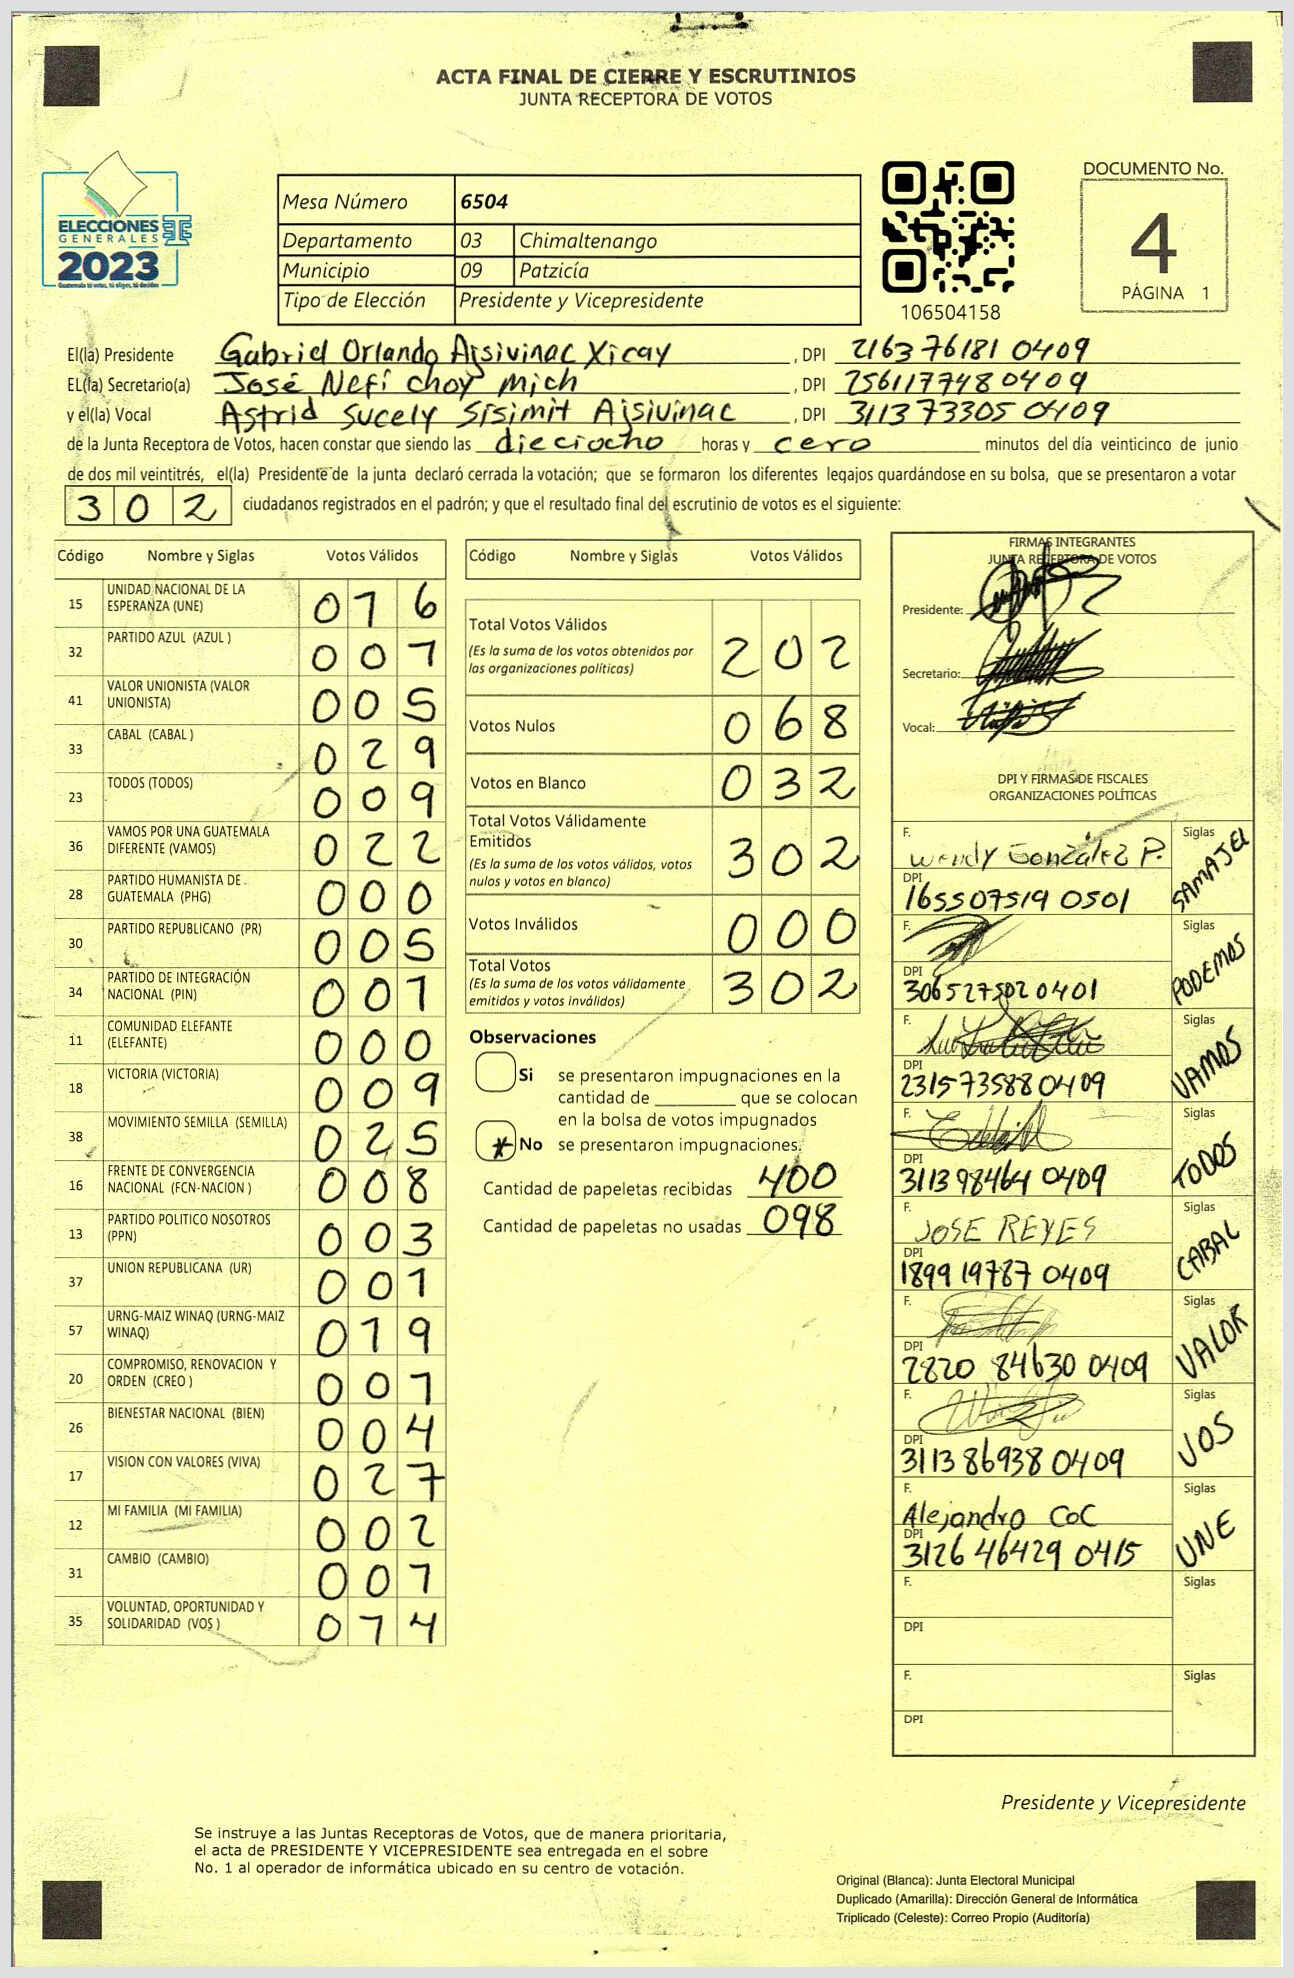 ACTA FINAL DE CIERRE Y ESCRUTINIOS
JUNTA RECEPTORA DE VOTOS
ELECCIONES
GENERALES
2023
Guatemala tú votas, tú eliges, tú decides
Mesa Número 6504
Departamento 03 Chimaltenango
Municipio 09 Patzicía
Tipo de Elección Presidente y Vicepresidente
106504158
DOCUMENTO No.
4
PÁGINA 1
El(la) Presidente Gabriel Orlando Ajsivinac Xicay , DPI 216376181 0409
EL(la) Secretario(a) José Nefí choy mich , DPI 256117748 0409
y el(la) Vocal Astrid Sucely Sisimit Ajsivinac , DPI 311373305 0409
de la Junta Receptora de Votos, hacen constar que siendo las dieciocho horas y cero minutos del día veinticinco de junio
de dos mil veintitrés, el(la) Presidente de la junta declaró cerrada la votación; que se formaron los diferentes legajos guardándose en su bolsa, que se presentaron a votar
302 ciudadanos registrados en el padrón; y que el resultado final del escrutinio de votos es el siguiente:
Código Nombre y Siglas Votos Válidos
15 UNIDAD NACIONAL DE LA ESPERANZA (UNE) 016
32 PARTIDO AZUL (AZUL ) 001
41 VALOR UNIONISTA (VALOR UNIONISTA) 005
33 CABAL (CABAL ) 029
23 TODOS (TODOS) 009
36 VAMOS POR UNA GUATEMALA DIFERENTE (VAMOS) 022
28 PARTIDO HUMANISTA DE GUATEMALA (PHG) 000
30 PARTIDO REPUBLICANO (PR) 005
34 PARTIDO DE INTEGRACIÓN NACIONAL (PIN) 001
11 COMUNIDAD ELEFANTE (ELEFANTE) 000
18 VICTORIA (VICTORIA) 009
38 MOVIMIENTO SEMILLA (SEMILLA) 025
16 FRENTE DE CONVERGENCIA NACIONAL (FCN-NACION ) 008
13 PARTIDO POLITICO NOSOTROS (PPN) 003
37 UNION REPUBLICANA (UR) 001
57 URNG-MAIZ WINAQ (URNG-MAIZ WINAQ) 019
20 COMPROMISO, RENOVACION Y ORDEN (CREO ) 001
26 BIENESTAR NACIONAL (BIEN) 004
17 VISION CON VALORES (VIVA) 027
12 MI FAMILIA (MI FAMILIA) 002
31 CAMBIO (CAMBIO) 001
35 VOLUNTAD, OPORTUNIDAD Y SOLIDARIDAD (VOS ) 014
Código Nombre y Siglas Votos Válidos
Total Votos Válidos 202
(Es la suma de los votos obtenidos por
las organizaciones políticas)
Votos Nulos 068
Votos en Blanco 032
Total Votos Válidamente
Emitidos 302
(Es la suma de los votos válidos, votos
nulos y votos en blanco)
Votos Inválidos 000
Total Votos 302
(Es la suma de los votos válidamente
emitidos y votos inválidos)
Observaciones
Si se presentaron impugnaciones en la
cantidad de ________ que se colocan
en la bolsa de votos impugnados
* No se presentaron impugnaciones.
Cantidad de papeletas recibidas 400
Cantidad de papeletas no usadas 098
FIRMAS INTEGRANTES
JUNTA RECEPTORA DE VOTOS
Presidente:
Secretario:
Vocal:
DPI Y FIRMAS DE FISCALES
ORGANIZACIONES POLÍTICAS
F. Wendy González P. Siglas SAMAJEL
DPI 165507519 0501
F. Siglas PODEMOS
DPI 306527502 0401
F. Siglas VAMOS
DPI 231573588 0409
F. Siglas TODOS
DPI 311398464 0409
F. JOSE REYES Siglas CABAL
DPI 189919787 0409
F. Siglas VALOR
DPI 2820 84630 0409
F. Siglas VOS
DPI 311386938 0409
F. Alejandro CoC Siglas UNE
DPI 312646429 0415
F. Siglas
DPI
F. Siglas
DPI
Presidente y Vicepresidente
Se instruye a las Juntas Receptoras de Votos, que de manera prioritaria,
el acta de PRESIDENTE Y VICEPRESIDENTE sea entregada en el sobre
No. 1 al operador de informática ubicado en su centro de votación.
Original (Blanca): Junta Electoral Municipal
Duplicado (Amarilla): Dirección General de Informática
Triplicado (Celeste): Correo Propio (Auditoría)